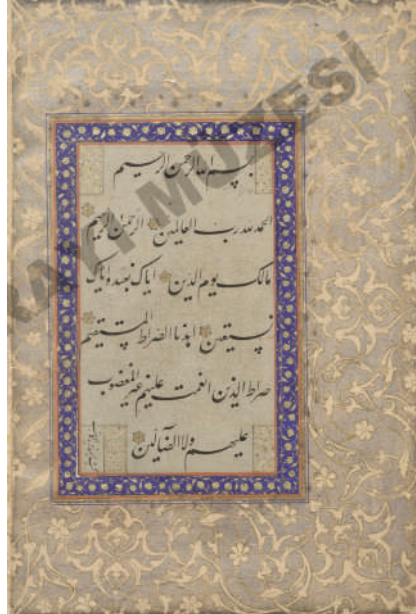 بسم الله الرحمن الرحيم
الحمد لله رب العالمين الرحمن الرحيم
مالك يوم الدين اياك نعبد و اياك
نستعين اهدنا الصراط المستقيم
صراط الذين انعمت عليهم غير المغضوب
عليهم ولا الضالين
RAYI MÜZESİ